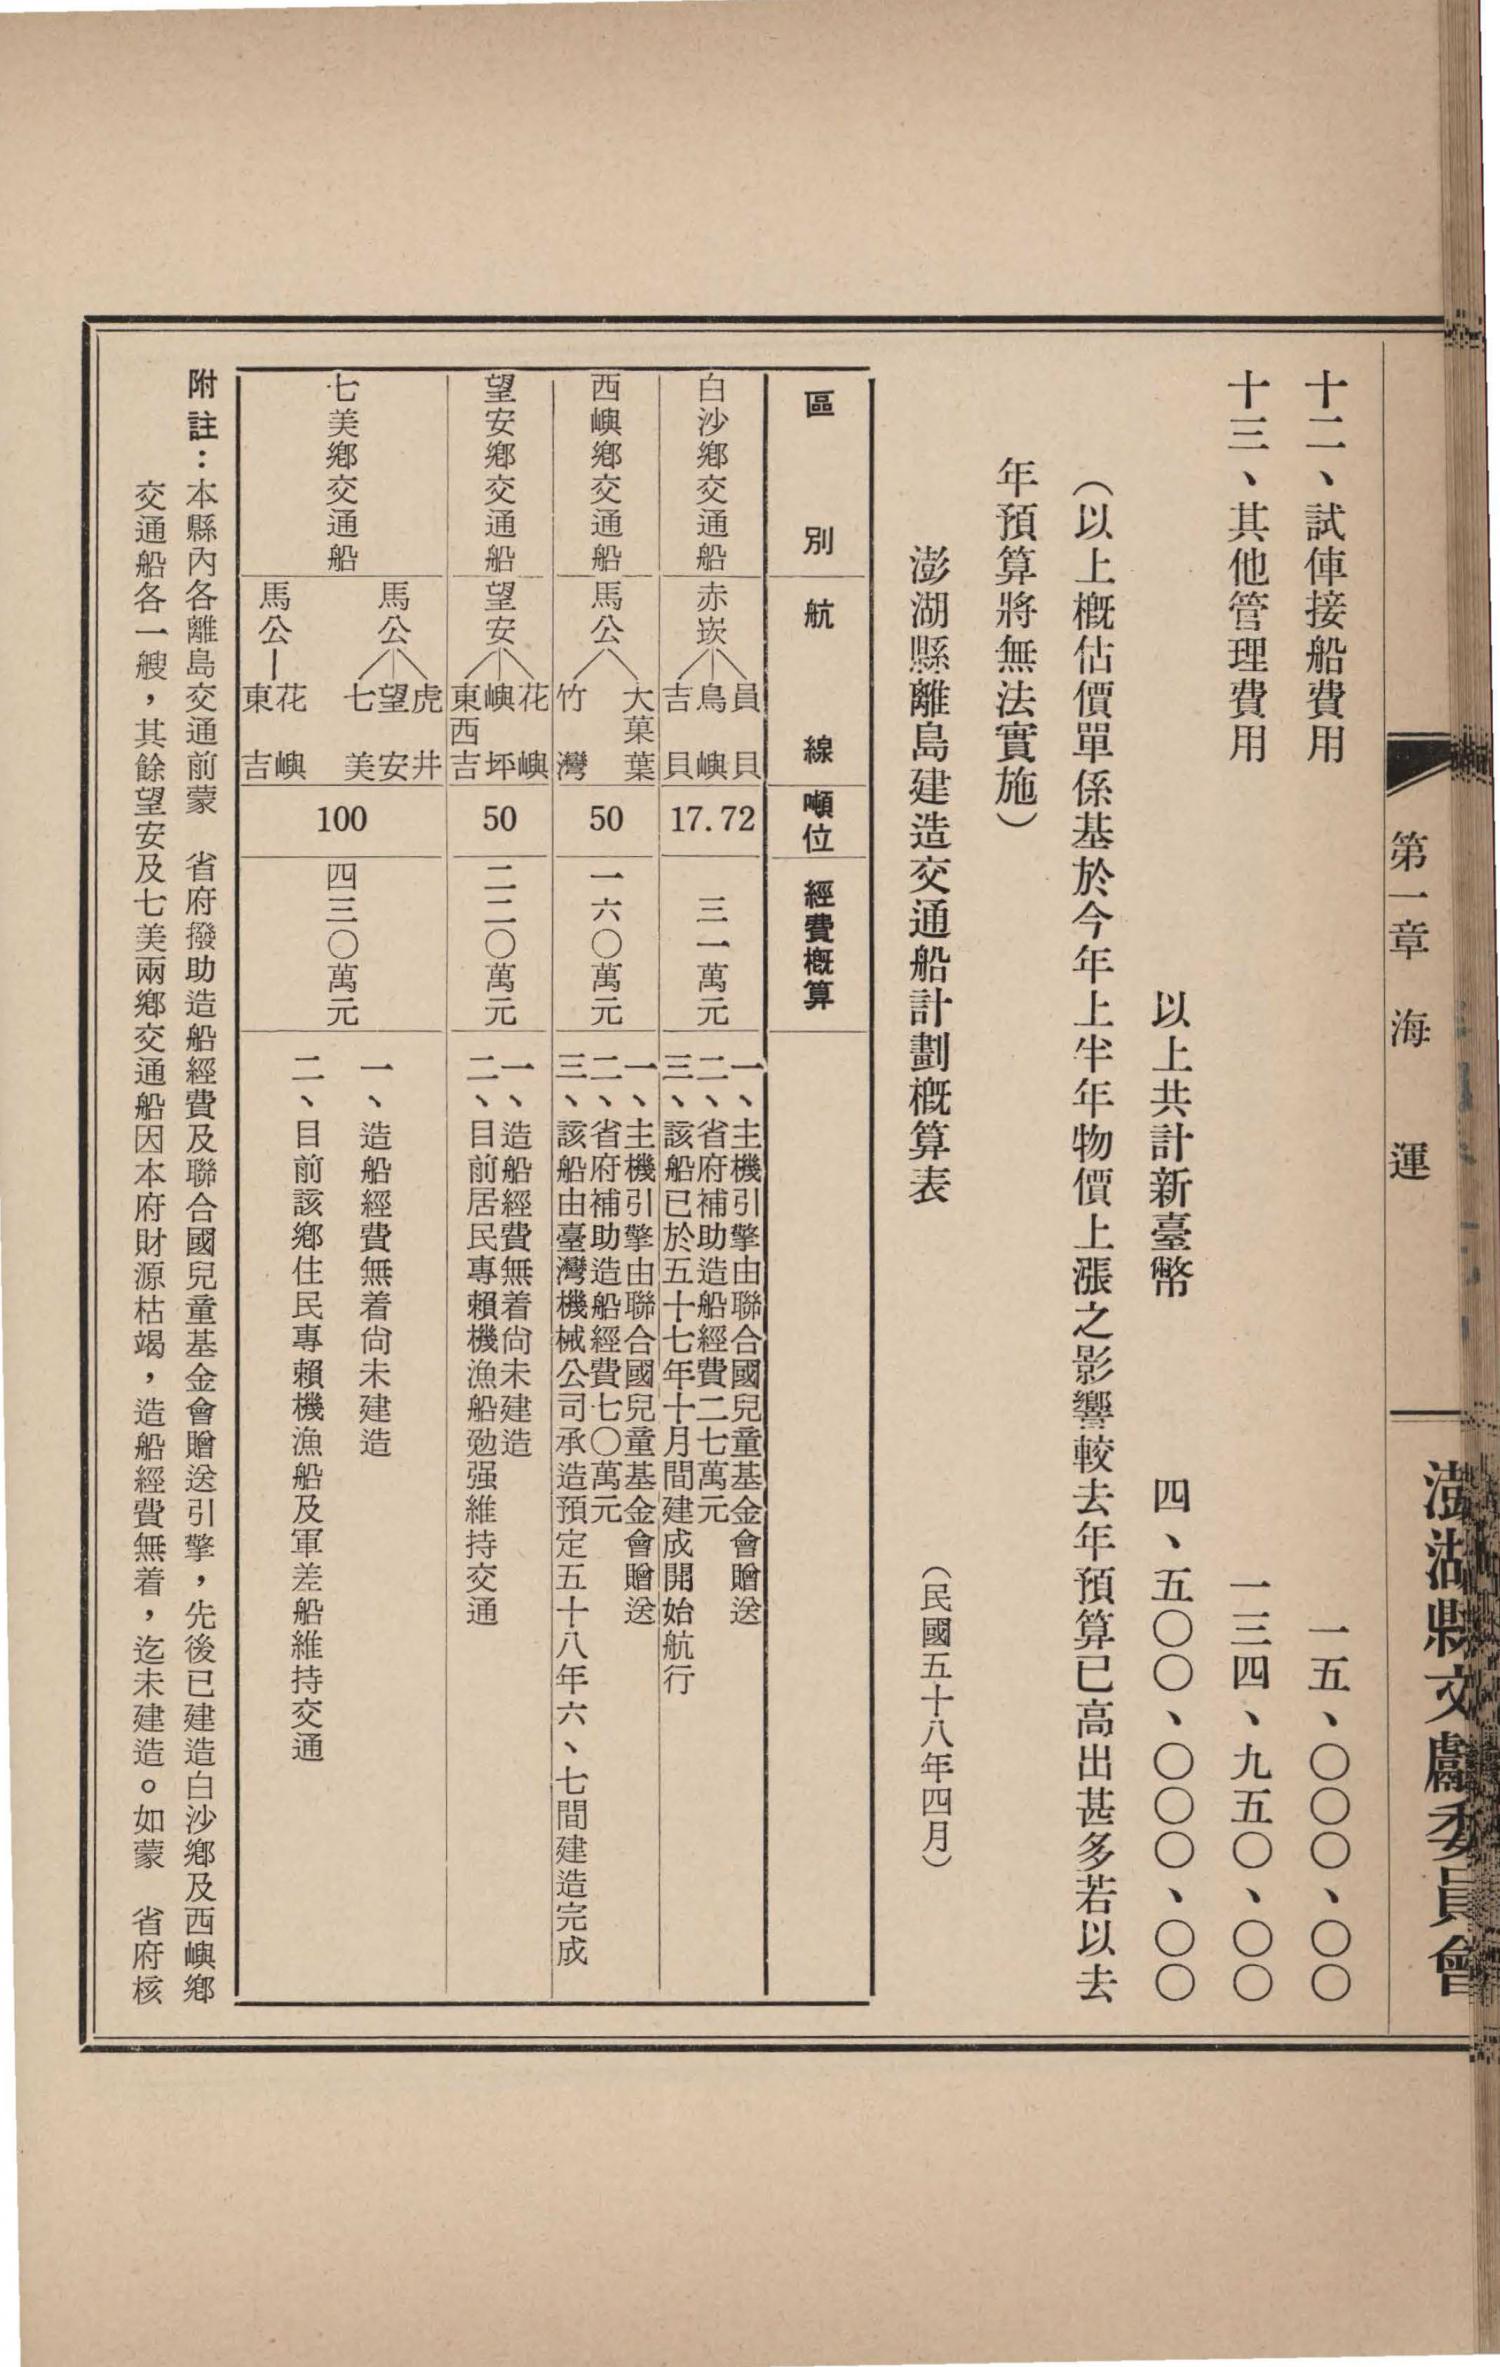 第一章　海　運
澎湖縣文獻委員會
十二、試俥接船費用　一五、〇〇〇、〇〇
十三、其他管理費用　一三四、九五〇、〇〇
以上共計新臺幣　四、五〇〇、〇〇〇、〇〇
（以上概估價單係基於今年上半年物價上漲之影響較去年預算已高出甚多若以去
年預算將無法實施）
澎湖縣離島建造交通船計劃概算表　（民國五十八年四月）
區別　航線　噸位　經費概算
白沙鄉交通船　赤崁　員貝　鳥嶼　吉貝　17.72　三一萬元
一、主機引擎由聯合國兒童基金會贈送
二、省府補助造船經費二七萬元
三、該船已於五十七年十月間建成開始航行
西嶼鄉交通船　馬公　大菓葉　竹灣　50　一六〇萬元
一、主機引擎由聯合國兒童基金會贈送
二、省府補助造船經費七〇萬元
三、該船由臺灣機械公司承造預定五十八年六、七間建造完成
望安鄉交通船　望安　花嶼　嶼坪　東西吉　50　二二〇萬元
一、造船經費無着尙未建造
二、目前居民專賴機漁船勉强維持交通
七美鄉交通船　馬公　虎井　望安　七美　馬公—花嶼　東吉　100　四三〇萬元
一、造船經費無着尙未建造
二、目前該鄉住民專賴機漁船及軍差船維持交通
附註：本縣內各離島交通前蒙　省府撥助造船經費及聯合國兒童基金會贈送引擎，先後已建造白沙鄉及西嶼鄉
交通船各一艘，其餘望安及七美兩鄉交通船因本府財源枯竭，造船經費無着，迄未建造。如蒙　省府核